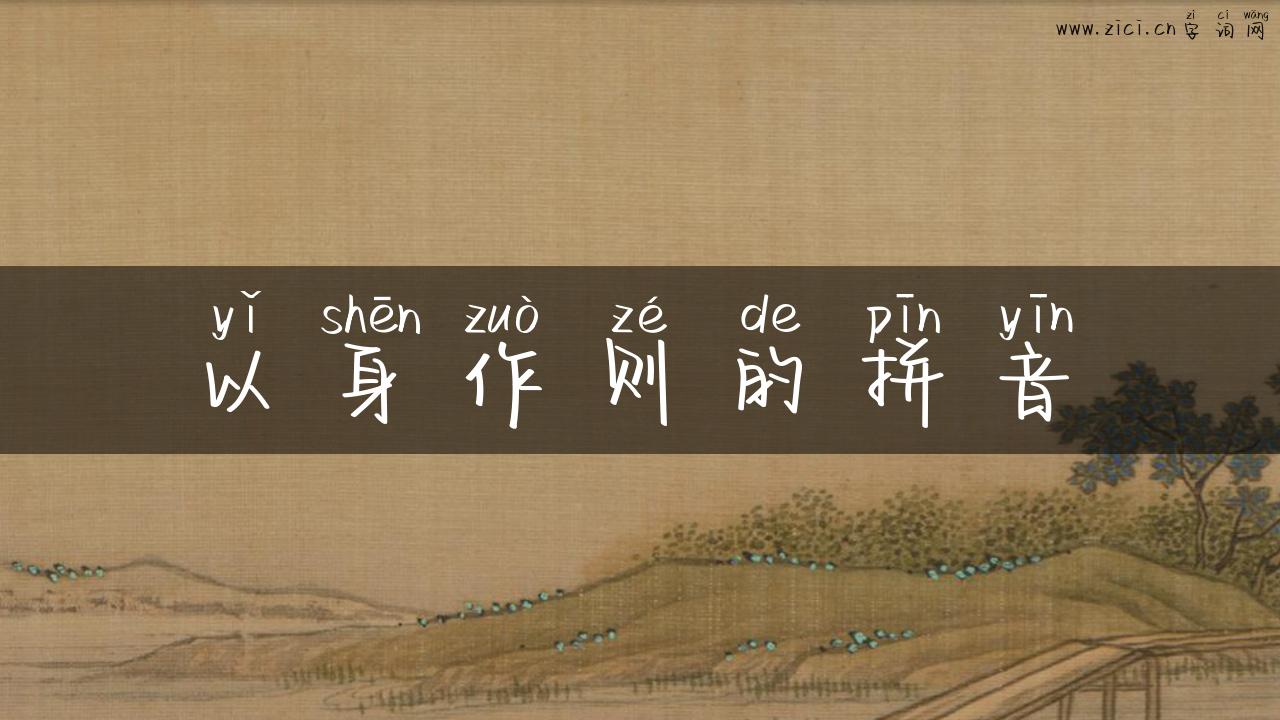 zì cí wǎng
www.zici.cn字词网
yǐ shēn zuò zé de pīn yīn
以身作则的拼音